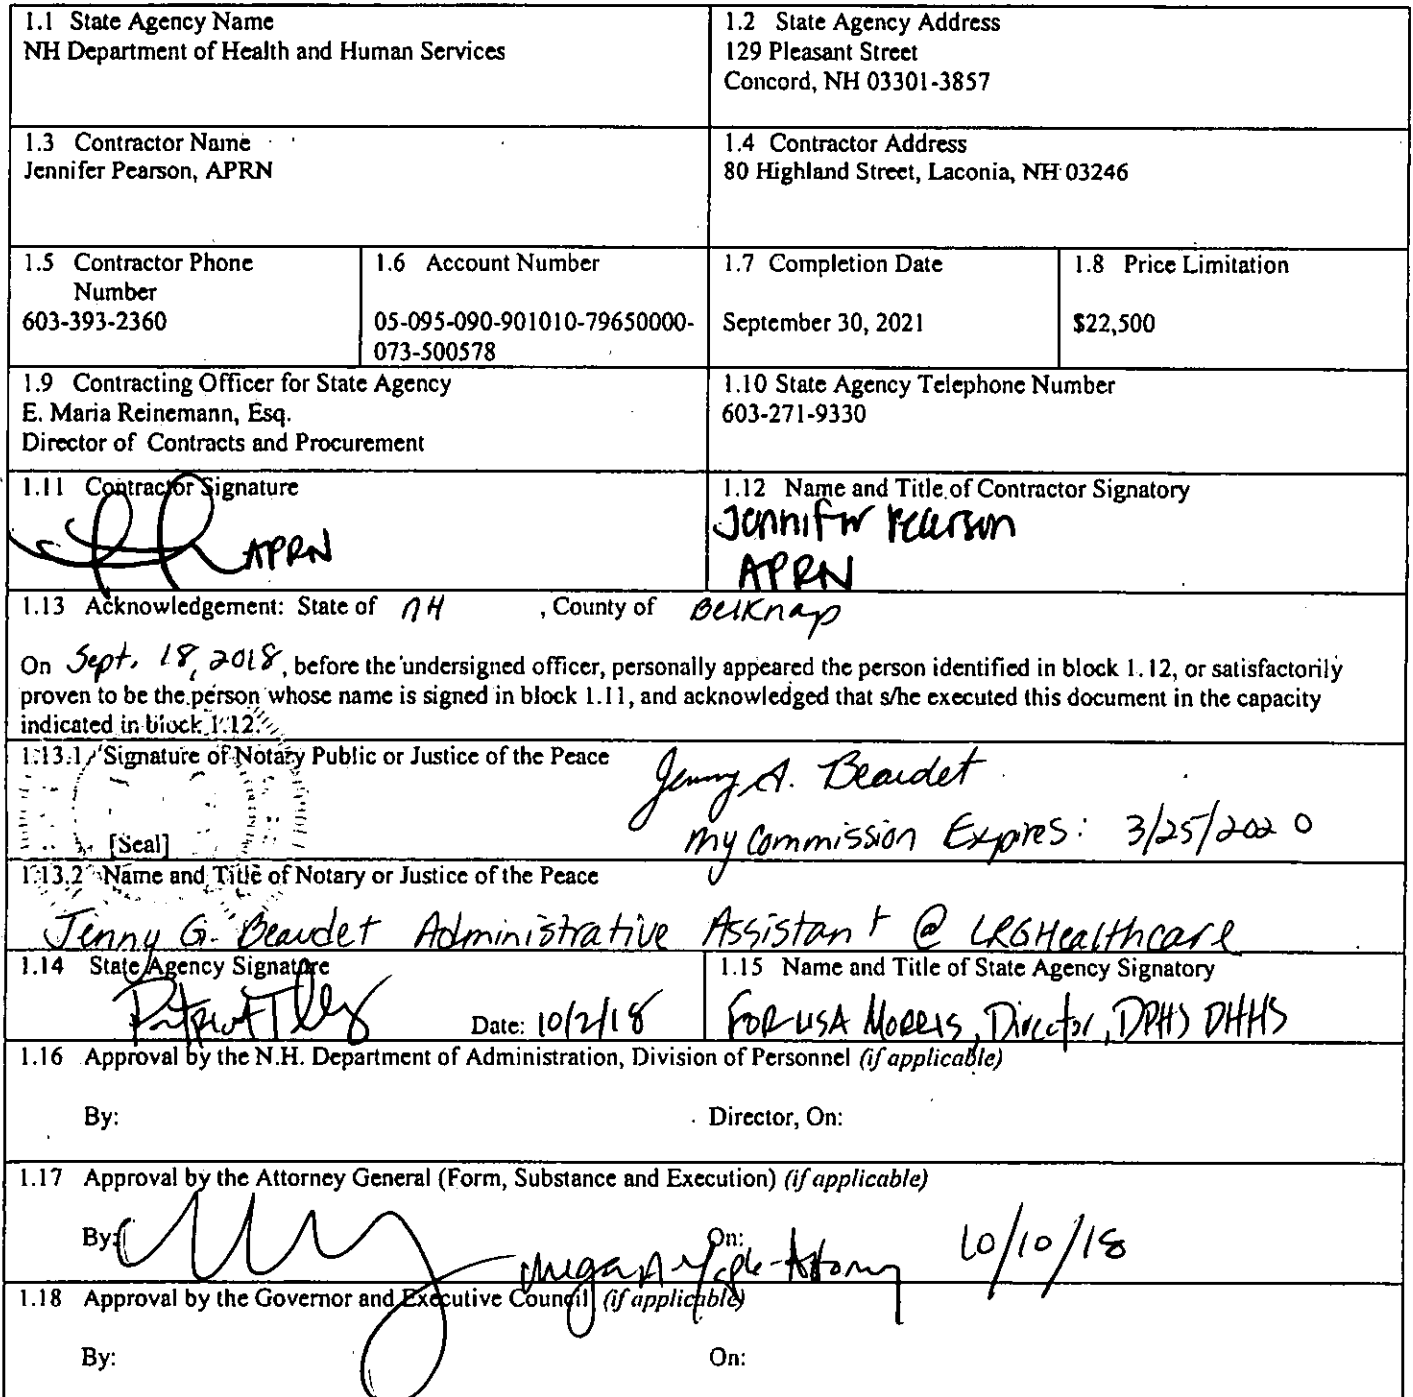 1.1 State Agency Name
NH Department of Health and Human Services
1.2 State Agency Address
129 Pleasant Street
Concord, NH 03301-3857
1.3 Contractor Name
Jennifer Pearson, APRN
1.4 Contractor Address
80 Highland Street, Laconia, NH 03246
1.5 Contractor Phone
Number
603-393-2360
1.6 Account Number
05-095-090-901010-79650000-
073-500578
1.7 Completion Date
September 30, 2021
1.8 Price Limitation
$22,500
1.9 Contracting Officer for State Agency
E. Maria Reinemann, Esq.
Director of Contracts and Procurement
1.10 State Agency Telephone Number
603-271-9330
1.11 Contractor Signature
APRN
1.12 Name and Title of Contractor Signatory
Jennifer Pearson
APRN
1.13 Acknowledgement: State of NH , County of Belknap
On Sept. 18, 2018, before the undersigned officer, personally appeared the person identified in block 1.12, or satisfactorily
proven to be the person whose name is signed in block 1.11, and acknowledged that s/he executed this document in the capacity
indicated in block 1.12.
1.13.1 Signature of Notary Public or Justice of the Peace
Jenny Beaudet
My Commission Expires: 3/25/2020
[Seal]
1.13.2 Name and Title of Notary or Justice of the Peace
Jenny G. Beaudet Administrative Assistant @ LRGHealthcare
1.14 State Agency Signature
Date: 10/2/18
1.15 Name and Title of State Agency Signatory
FOR LISA MORRIS, Director, DPHS DHHS
1.16 Approval by the N.H. Department of Administration, Division of Personnel (if applicable)
By:
Director, On:
1.17 Approval by the Attorney General (Form, Substance and Execution) (if applicable)
By:
On: 10/10/18
1.18 Approval by the Governor and Executive Council (if applicable)
By:
On: